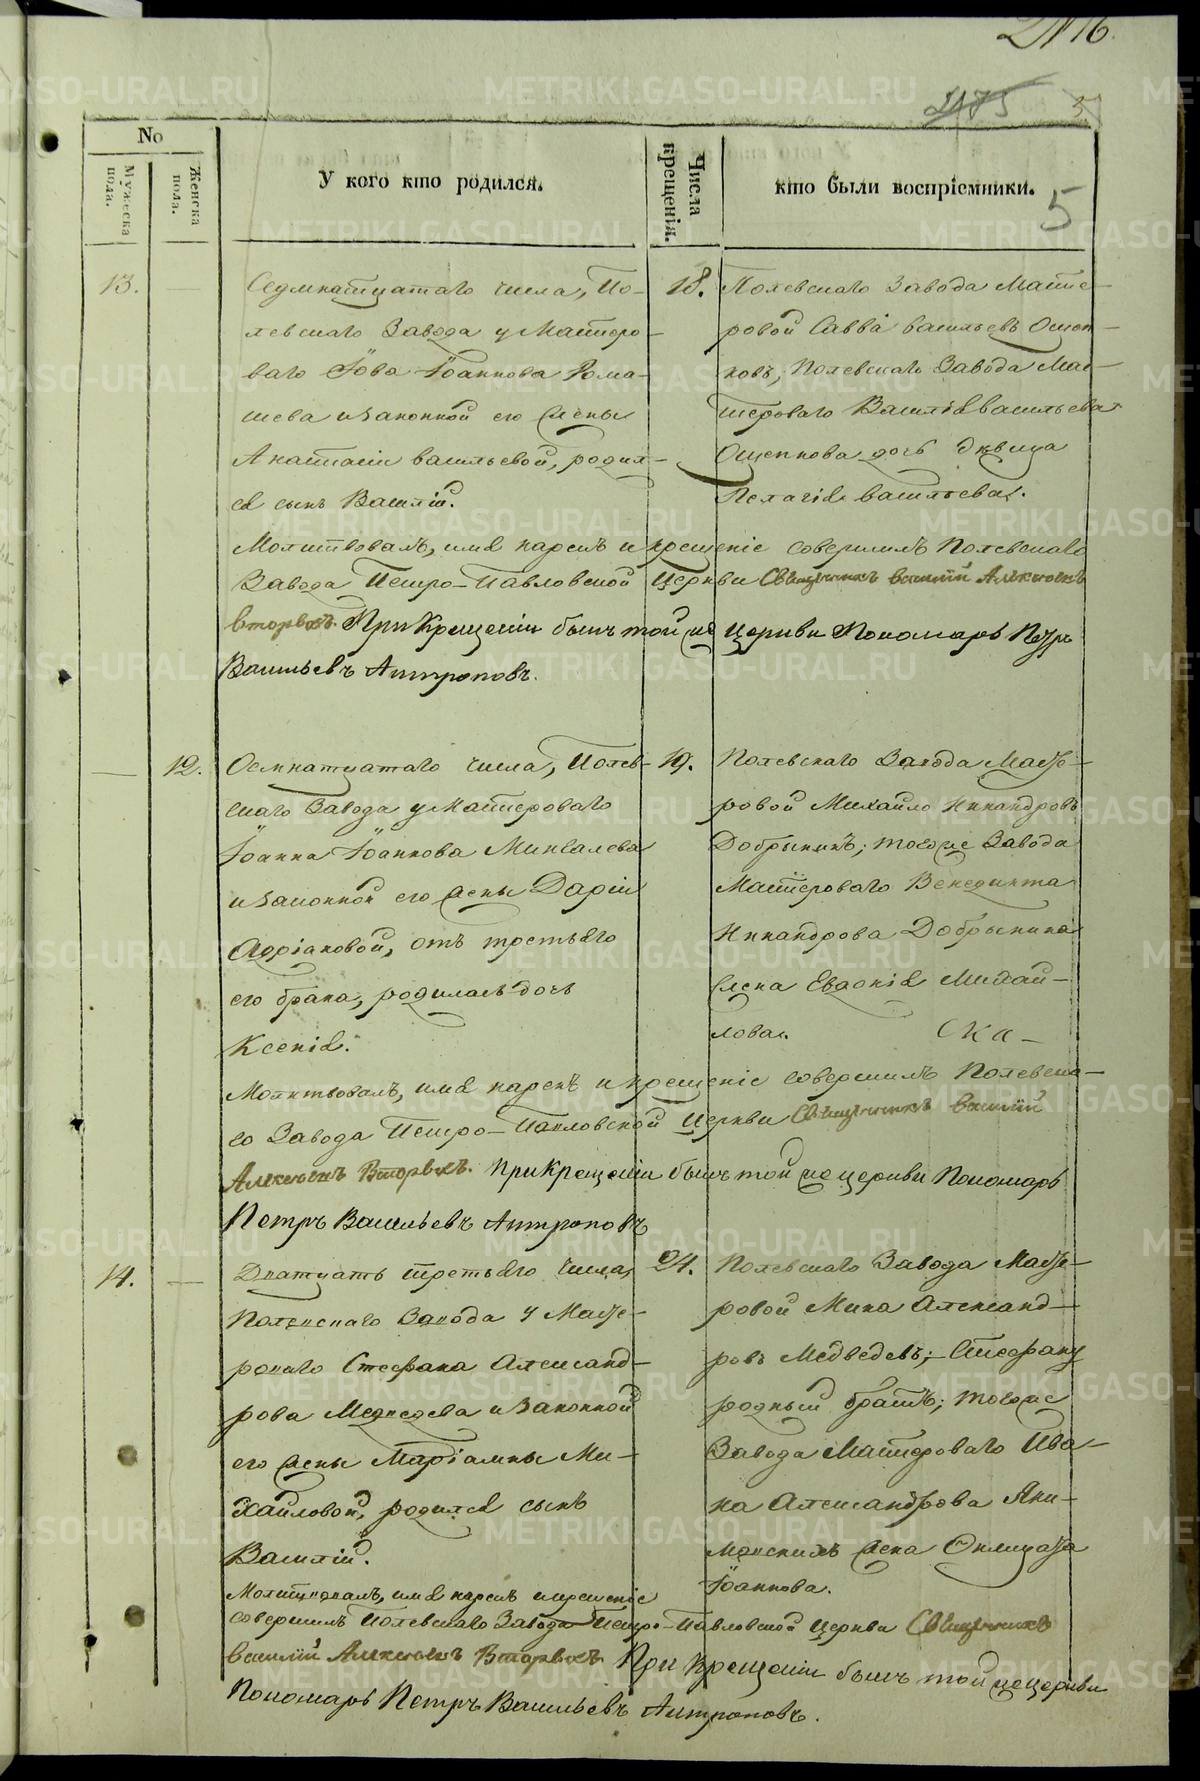 216.
5
No
Мужеска пола.
Женска пола.
У кого кто родился.
Числа крещенія.
кто были воспріемники.
5
13.
Седмнатцатаго числа, По-
левскаго Завода у Мастеро-
ваго Іова Іоаннова Рома-
шева и законной его жены
Анастасіи Васильевой, родил-
ся сынъ Василій.
18.
Полевскаго Завода Масте-
ровой Савва Васильевъ Ощеп-
ковъ; Полевскаго Завода Мас-
тероваго Василія Васильева
Ощепкова дочь дѣвица
Пелагія Васильева.
Молитвовалъ, имя нарекъ и крещеніе совершилъ Полевскаго
Завода Петро-Павловской Церкви Священникъ Василій Алексѣевъ
Вторыхъ. При Крещеніи былъ той же церкви Пономарь Петръ
Васильевъ Антроповъ.
12.
Осмнатцатаго числа, Полев-
скаго Завода у Мастероваго
Іоанна Іоаннова Мингалева
и законной его жены Даріи
Адріановой, отъ третьяго
его брака, родилась дочь
Ксенія.
19.
Полевскаго Завода Масте-
ровой Михайло Никандровъ
Добрынинъ; тогоже Завода
Мастероваго Венедикта
Никандрова Добрынина
жена Евдокія Михай-
лова.
Ска-
Молитвовалъ, имя нарекъ и крещеніе совершилъ Полевска-
го Завода Петро-Павловской Церкви Священникъ Василій
Алексѣевъ Вторыхъ. При Крещеніи былъ той же церкви Пономарь
Петръ Васильевъ Антроповъ
14.
Дватцать третьяго числа,
Полевскаго Завода у Масте-
роваго Стефана Александ-
рова Медведева и законной
его жены Маріамны Ми-
хайловой, родился сынъ
Василій.
24.
Полевскаго Завода Масте-
ровой Мина Александ-
ровъ Медведевъ; Стефану
родный братъ; тогоже
Завода Мастероваго Ива-
на Александрова
жена
Іоаннова.
Молитвовалъ, имя нарекъ и крещеніе
совершилъ Полевскаго Завода Петро-Павловской Церкви Священникъ
Василій Алексѣевъ Вторыхъ При Крещеніи былъ той же церкви
Пономарь Петръ Васильевъ Антроповъ.
METRIKI.GASO-URAL.RU